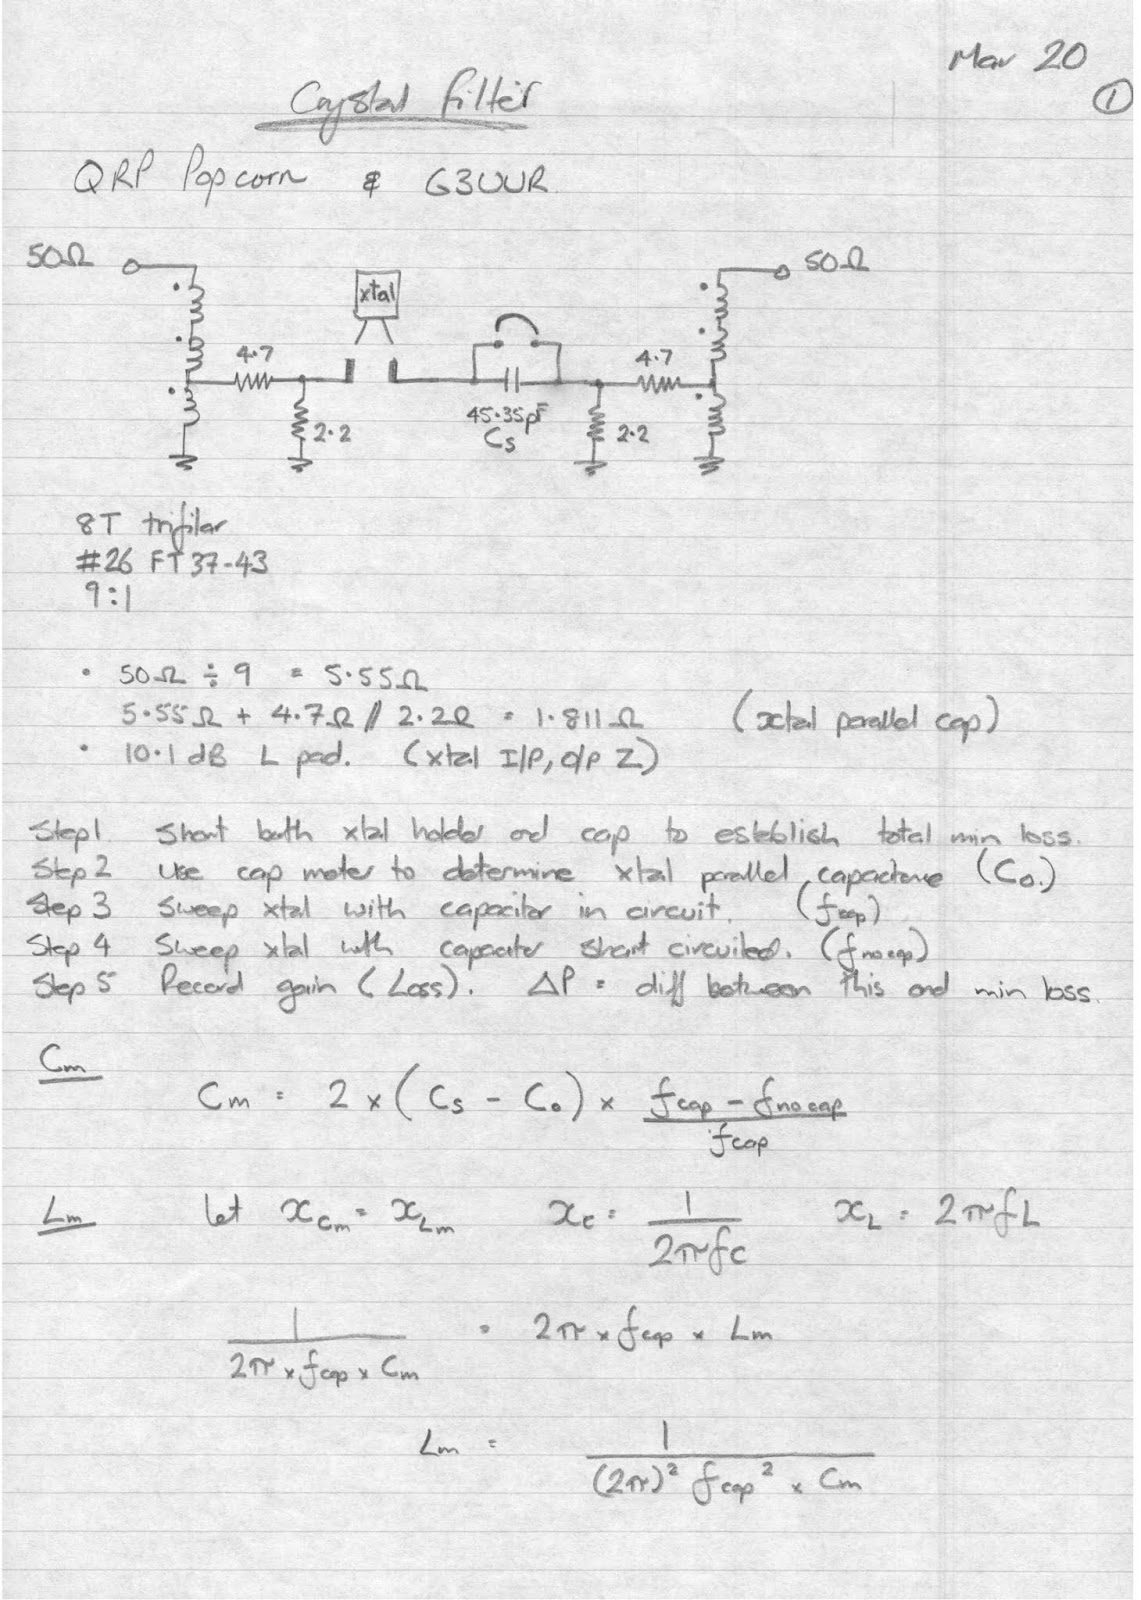 Mar 20
①
Crystal Filter
QRP Popcorn & G3UUR.
50Ω
50Ω
xtal
4.7
4.7
2.2
45.35pF
Cs
2.2
8T trifilar
#26 FT37-43
9:1
• 50Ω ÷ 9 = 5.55Ω
5.55Ω + 4.7Ω // 2.2Ω = 1.811Ω (xtal parallel cap)
• 10.1 dB L pad. (xtal I/P, O/P Z)
Step1 Short both xtal holder and cap to establish total min loss.
Step 2 Use cap meter to determine xtal parallel capacitance (Co.)
Step 3 Sweep xtal with capacitor in circuit. (fcap)
Step 4 Sweep xtal with capacitor short circuited. (fnocap)
Step 5 Record gain (Loss). ΔP = diff between this and min loss.
Cm
Cm = 2 x (Cs - Co) x fcap - fnocap / fcap
Lm let XCm = XLm Xc = 1 / 2πfC XL = 2πfL
1 / 2π x fcap x Cm = 2π x fcap x Lm
Lm = 1 / (2π)² fcap² x Cm